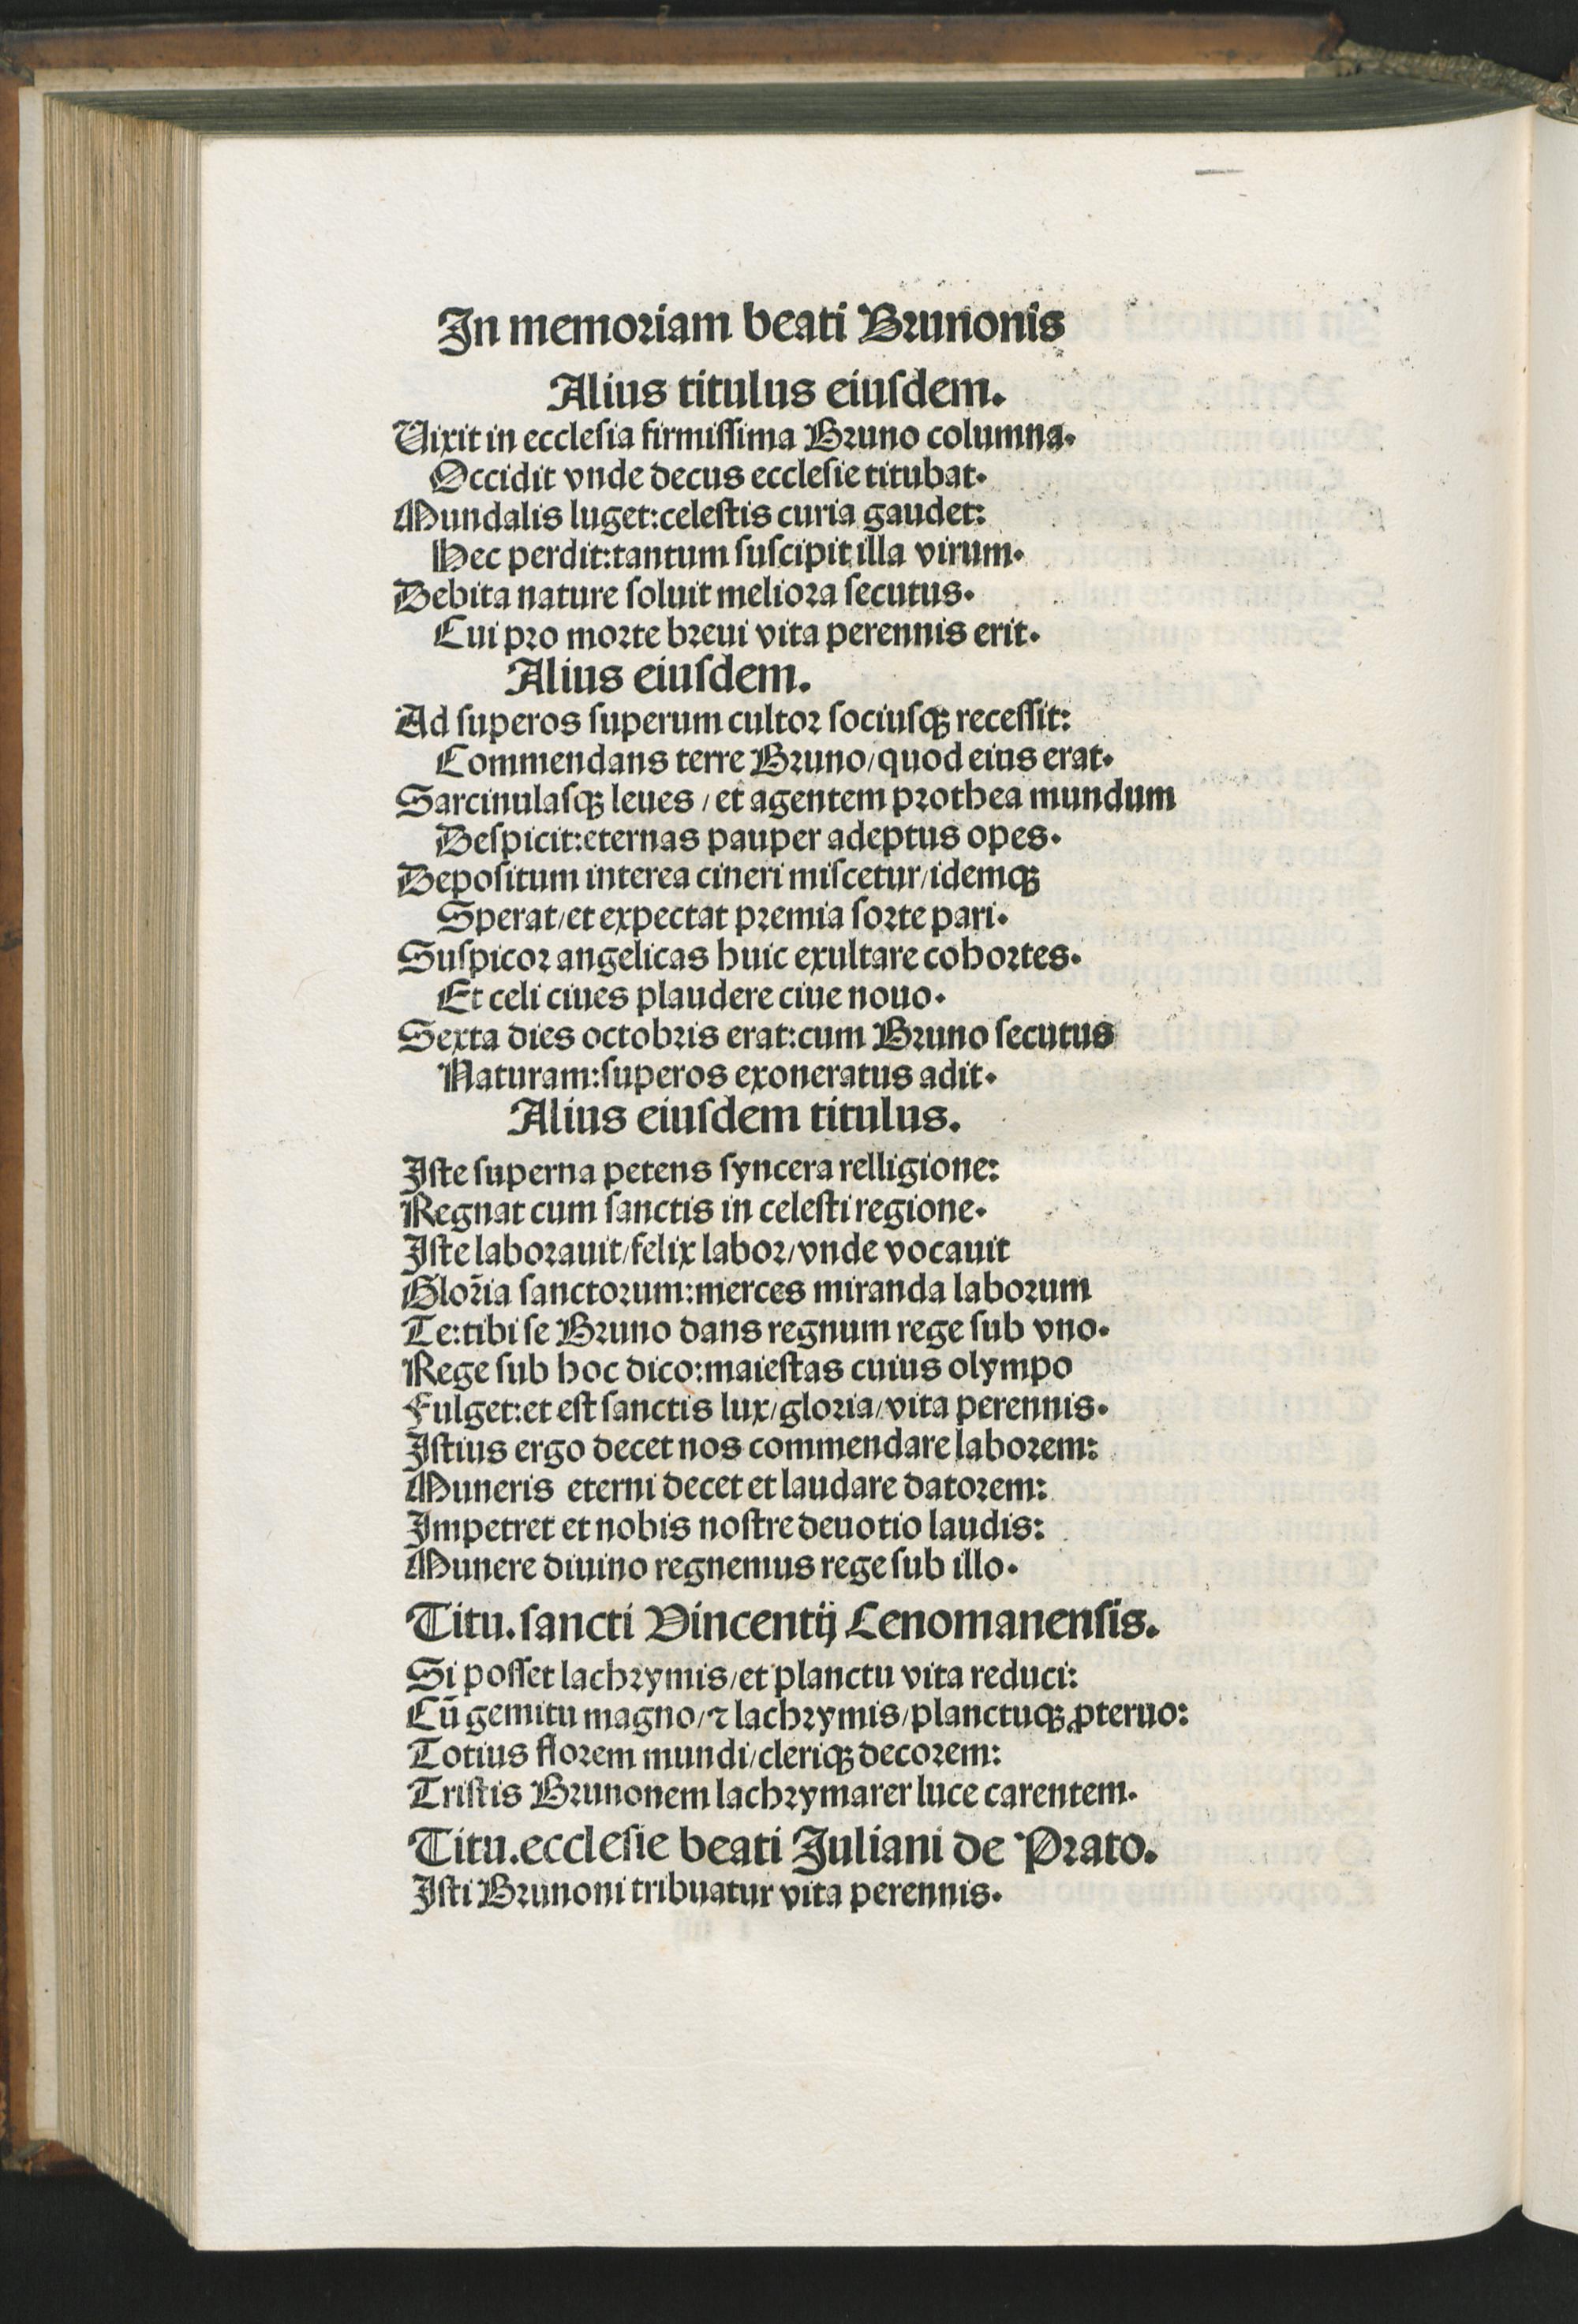 In memoriam beati Brunonis
Alius titulus eiuſdem.
Vixit in eccleſia firmiſſima Bruno columna.
Occidit vnde decus eccleſie titubat.
Mundalis luget:celeſtis curia gaudet:
Hec perdit:tantum ſuſcipit illa virum.
Debita nature ſoluit meliora ſecutus.
Cui pro morte breui vita perennis erit.
Alius eiuſdem.
Ad ſuperos ſuperum cultor ſociuſqꝫ receſſit:
Commendans terre Bruno/quod eius erat.
Sarcinulaſqꝫ leues / et agentem prothea mundum
Deſpicit:eternas pauper adeptus opes.
Depoſitum interea cineri miſcetur/idemqꝫ
Sperat/et expectat premia ſorte pari.
Suſpicor angelicas huic exultare cohortes.
Et celi ciues plaudere ciue nouo.
Sexta dies octobris erat:cum Bruno ſecutus
Naturam:ſuperos exoneratus adit.
Alius eiuſdem titulus.
Iſte ſuperna petens ſyncera relligione:
Regnat cum ſanctis in celeſti regione.
Iſte laborauit/felix labor/vnde vocauit
Glor̃ia ſanctorum:merces miranda laborum
Te:tibi ſe Bruno dans regnum rege ſub vno.
Rege ſub hoc dico:maieſtas cuius olympo
Fulget:et eſt ſanctis lux/gloria/vita perennis.
Iſtius ergo decet nos commendare laborem:
Muneris eterni decet et laudare datorem:
Impetret et nobis noſtre deuotio laudis:
Munere diuino regnemus rege ſub illo.
Titu.ſancti Vincentij Cenomanenſis.
Si poſſet lachrymis/et planctu vita reduci:
Cū gemitu magno/⁊ lachrymis/planctuqꝫ ꝓteruo:
Totius florem mundi/cleriqꝫ decorem:
Triſtis Brunonem lachrymarer luce carentem.
Titu.eccleſie beati Juliani de Prato.
Iſti Brunoni tribuatur vita perennis.